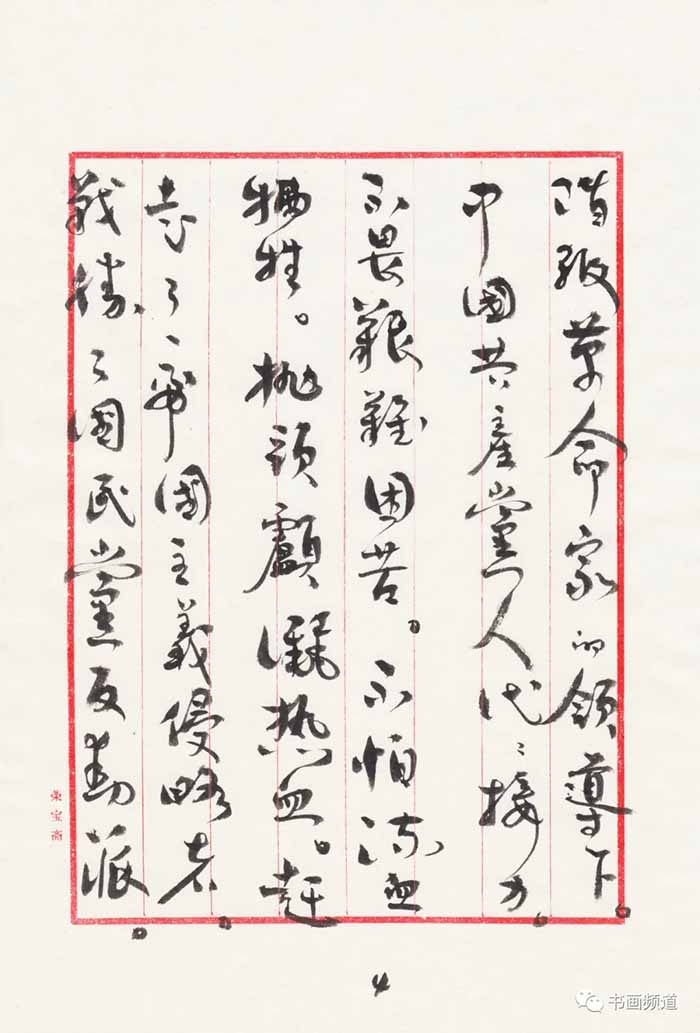 階級革命家的領導下。
中國共產黨人代々接力。
不畏艱難困苦。不怕流血
犧牲。拋頭顱灑热血。赶
走了、帝國主義侵略者。
戰勝了國民黨反動派。
榮宝斋
4
书画频道